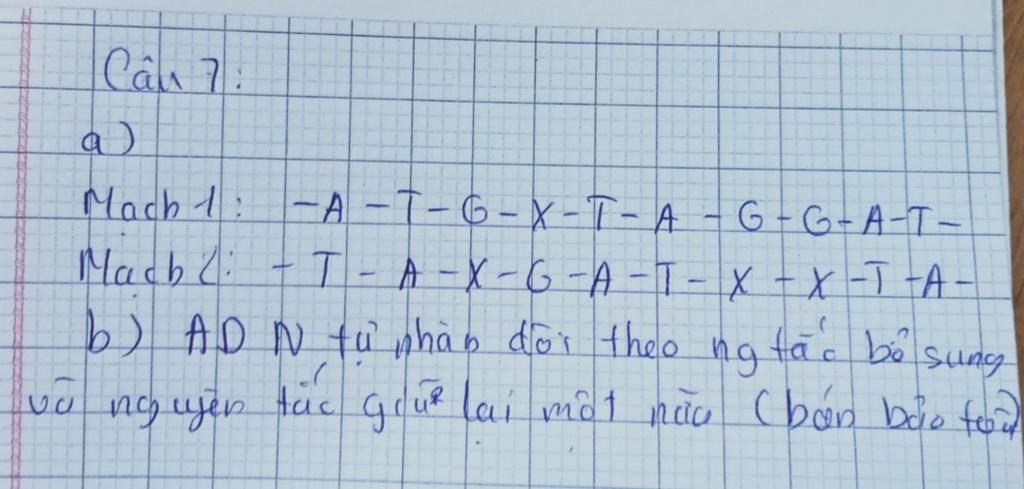 Câu 7:
a)
Mạch 1: - A - T - G - X - T - A - G - G - A - T -
Mạch 2: - T - A - X - G - A - T - X - X - T - A -
b) ADN tự nhân đôi theo ng tắc bổ sung
và nguyên tắc giữ lại một nửa (bán bảo toàn)